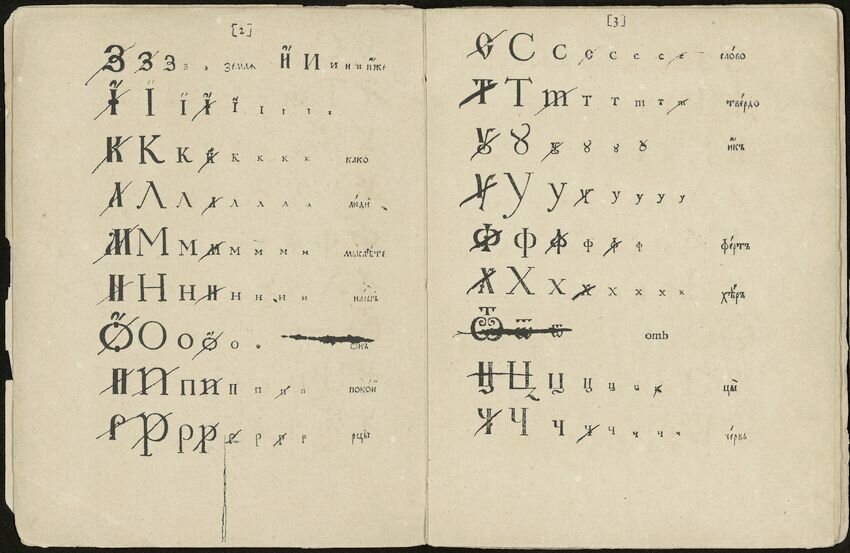 [2]
З З з з з земля И И и и и иже
Ї Ї ї ї ї ı ı ı ı
К К к к к к к к како
Л Л л л л л л л люди
М М м м м м м м мыслѣте
Н Н н н н н н н нашъ
О О о о о о онъ
П П п п п п п п покой
Р Р р р р р р р рцы
[3]
С С с с с с с слово
Т Т т т т т т т твердо
Ꙋ Ꙋ ꙋ ꙋ ꙋ ꙋ икъ
У У у у у у у у
Ф ф ф ф ф ф фертъ
Х Х х х х х х хѣръ
Ѿ ѿ ѿ отъ
Ц Ц ц ц ц ц ц цы
Ч Ч ч ч ч ч ч ч червь